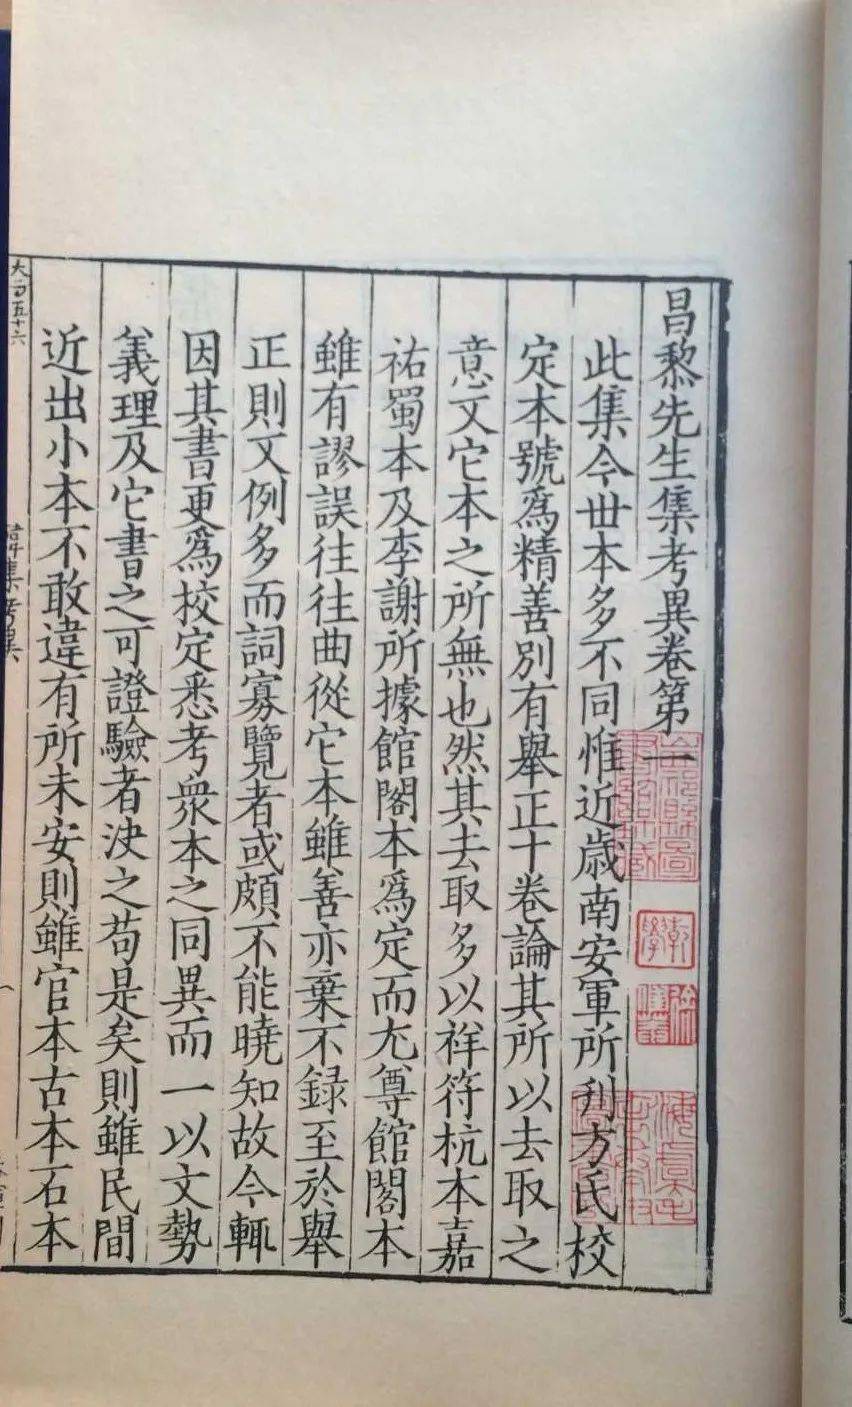 昌黎先生集考異卷第一
此集今世本多不同惟近歲南安軍所刋方氏校
定本號爲精善別有舉正十卷論其所以去取之
意又它本之所無也然其去取多以祥符杭本嘉
祐蜀本及李謝所據館閣本爲定而尤尊館閣本
雖有謬誤往往曲從它本雖善亦棄不録至於舉
正則又例多而詞寡覽者或頗不能曉知故今輒
因其書更爲校定悉考衆本之同異而一以文勢
義理及它書之可證驗者決之苟是矣則雖民間
近出小本不敢違有所未安則雖官本古本石本
大一百五十六
韓集考異